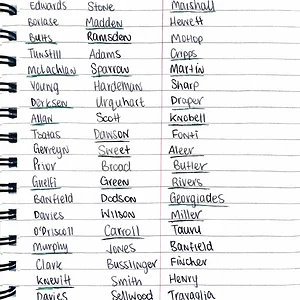 Edwards Stone Marshall
Borlase Madden Hewett
Butts Ramsden McHop
Tunstill Adams Cripps
McLachlan Sparrow Martin
Young Hardeman Sharp
Derksen Urquhart Draper
Allan Scott Knobell
Tsatas Dawson Fonti
Gerreyn Sweet Aleer
Prior Broad Butler
Guelfi Green Rivers
Banfield Dodson Georgiades
Davies Wilson Miller
O'Driscoll Carroll Taunu
Murphy Jones Banfield
Clark Busslinger Fincher
Knevitt Smith Henry
Davies Sellwood Travaglia